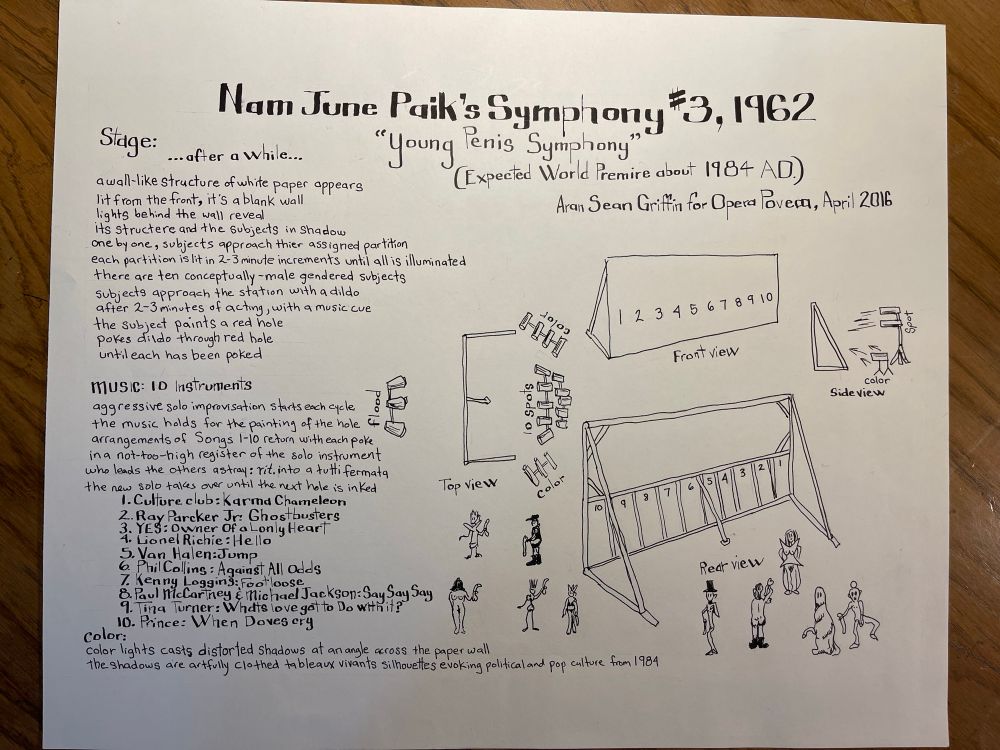 Nam June Paik's Symphony #3, 1962
"Young Penis Symphony"
(Expected World Premire about 1984 AD.)
Aran Sean Griffin for Opera Povera, April 2016
Stage:
...after a while...
a wall-like structure of white paper appears
lit from the front, it's a blank wall
lights behind the wall reveal
its structere and the subjects in shadow
one by one, subjects approach thier assigned partition
each partition is lit in 2-3 minute increments until all is illuminated
there are ten conceptually-male gendered subjects
subjects approach the station with a dildo
after 2-3 minutes of acting, with a music cue
the subject paints a red hole
pokes dildo through red hole
until each has been poked
MUSIC: 10 Instruments
aggressive solo improvisation starts each cycle
the music holds for the painting of the hole
arrangements of Songs 1-10 return with each poke
in a not-too-high register of the solo instrument
who leads the others astray: rit. into a tutti fermata
the new solo takes over until the next hole is inked
1. Culture club: Karma Chameleon
2. Ray Parcker Jr: Ghostbusters
3. YES: Owner Of a Lonly Heart
4. Lionel Richie: Hello
5. Van Halen: Jump
6. Phil Collins: Against All Odds
7. Kenny Loggins: Footloose
8. Paul McCartney & Michael Jackson: Say Say Say
9. Tina Turner: What's love got to Do with it?
10. Prince: When Doves cry
Color:
color lights casts distorted shadows at an angle across the paper wall
the shadows are artfully clothed tableaux vivants silhouettes evoking political and pop culture from 1984
flood
color
10 spots
color
Top view
1 2 3 4 5 6 7 8 9 10
Front view
spot
color
Side view
10 9 8 7 6 5 4 3 2 1
Rear view